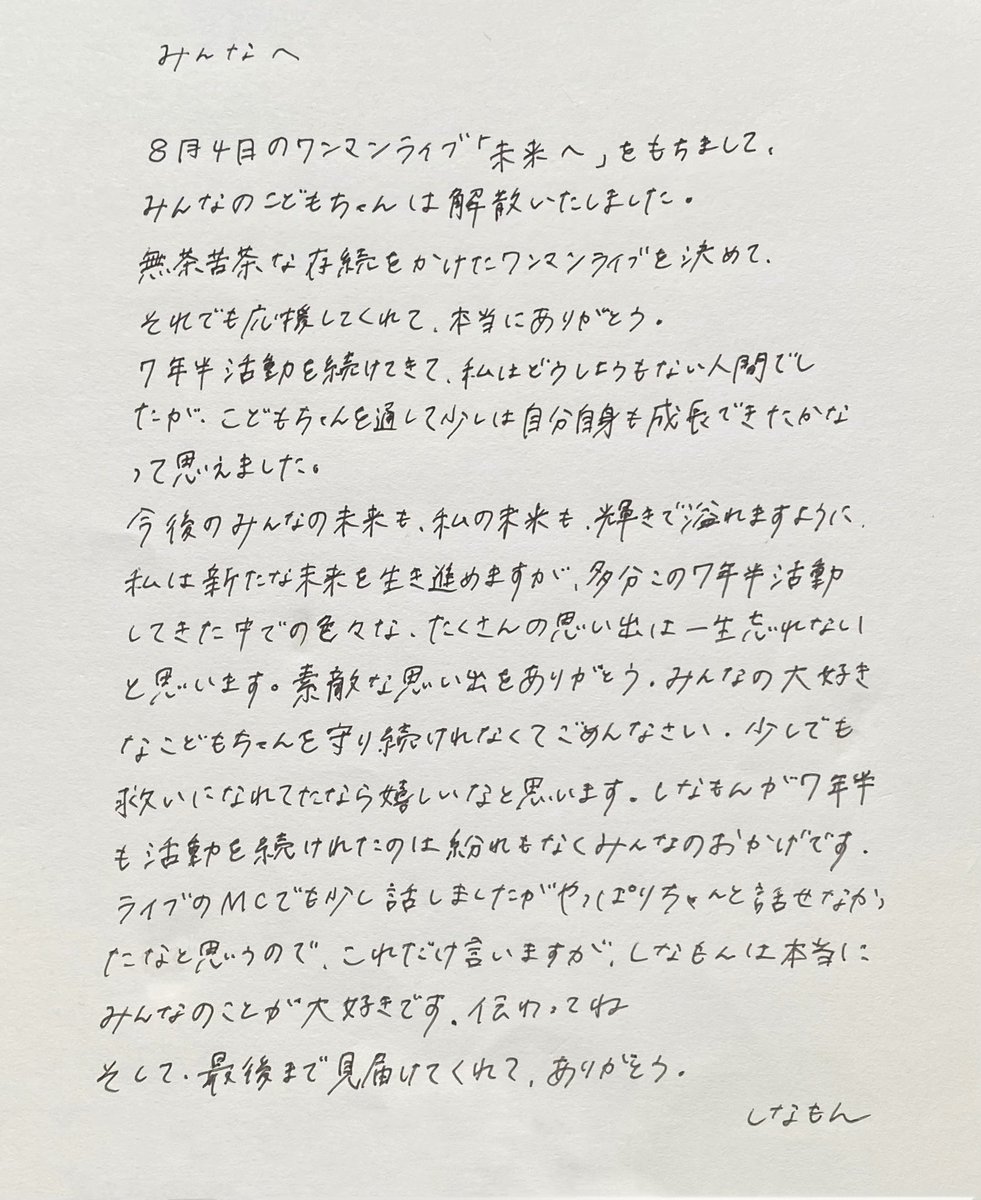 みんなへ
8月4日のワンマンライブ「未来へ」をもちまして、
みんなのこどもちゃんは解散いたしました。
無茶苦茶な存続をかけたワンマンライブを決めて、
それでも応援してくれて、本当にありがとう。
7年半活動を続けてきて、私はどうしようもない人間でし
たが、こどもちゃんを通して少しは自分自身も成長できたかな
って思えました。
今後のみんなの未来も、私の未来も、輝きで溢れますように、
私は新たな未来を生き進めますが、多分この7年半活動
してきた中での色々な、たくさんの思い出は一生忘れない
と思います。素敵な思い出をありがとう。みんなの大好き
なこどもちゃんを守り続けれなくてごめんなさい。少しでも
救いになれてたなら嬉しいなと思います。しなもんが7年半
も活動を続けれたのは紛れもなくみんなのおかげです。
ライブのMCでも少し話しましたがやっぱりちゃんと話せなかっ
たなと思うので、これだけ言いますが、しなもんは本当に
みんなのことが大好きです。伝わってね
そして、最後まで見届けてくれて、ありがとう。
しなもん